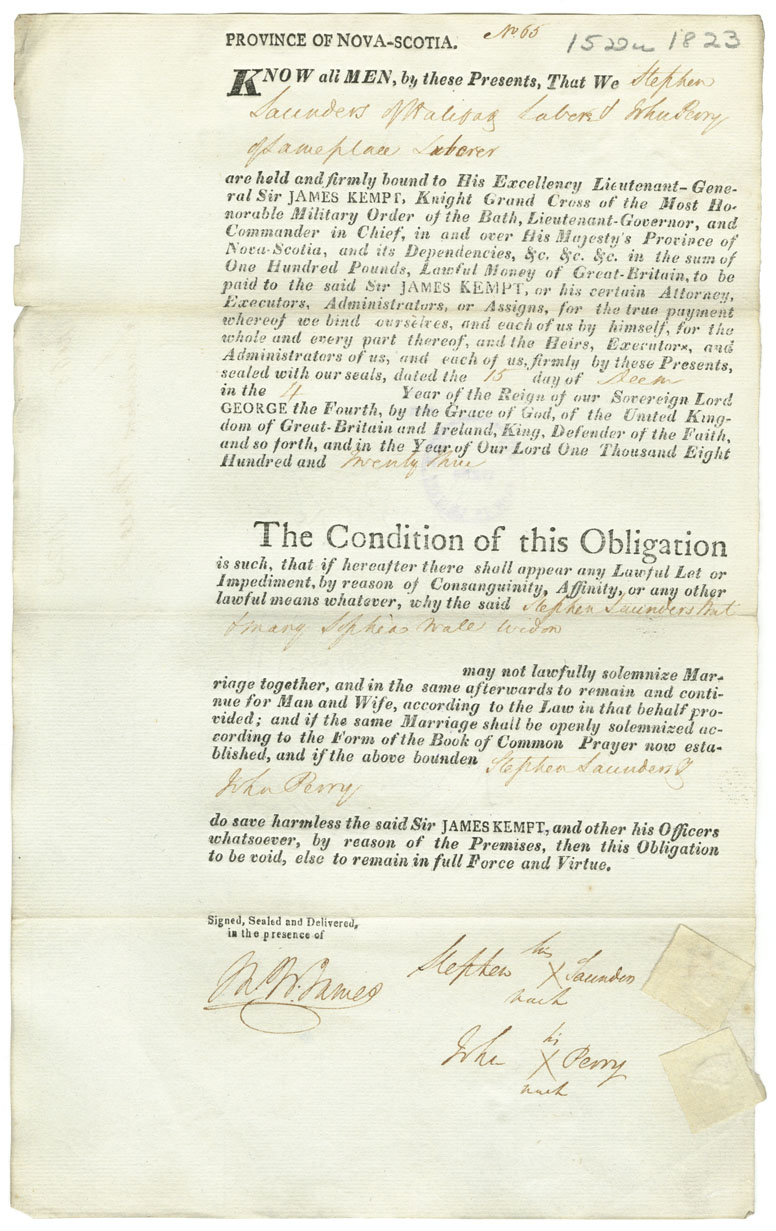 PROVINCE OF NOVA-SCOTIA. No 65 15 1823
KNOW all MEN, by these Presents, That We Stephen
Saunders of Halifax Laberer & John Perry
of Same place Laberer
are held and firmly bound to His Excellency Lieutenant-Gene-
ral Sir JAMES KEMPT, Knight Grand Cross of the Most Ho-
norable Military Order of the Bath, Lieutenant-Governor, and
Commander in Chief, in and over His Majesty's Province of
Nova-Scotia, and its Dependencies, &c. &c. &c. in the sum of
One Hundred Pounds, Lawful Money of Great-Britain, to be
paid to the said Sir JAMES KEMPT, or his certain Attorney,
Executors, Administrators, or Assigns, for the true payment
whereof we bind ourselves, and each of us by himself, for the
whole and every part thereof, and the Heirs, Executors, and
Administrators of us, and each of us, firmly by these Presents,
sealed with our seals, dated the 15 day of Decm
in the 4 Year of the Reign of our Sovereign Lord
GEORGE the Fourth, by the Grace of God, of the United King-
dom of Great-Britain and Ireland, King, Defender of the Faith,
and so forth, and in the Year of Our Lord One Thousand Eight
Hundred and Twenty Three
The Condition of this Obligation
is such, that if hereafter there shall appear any Lawful Let or
Impediment, by reason of Consanguinity, Affinity, or any other
lawful means whatever, why the said Stephen Saunders
& Mary Sophia Wale widow
may not lawfully solemnize Mar-
riage together, and in the same afterwards to remain and conti-
nue for Man and Wife, according to the Law in that behalf pro-
vided; and if the same Marriage shall be openly solemnized ac-
cording to the Form of the Book of Common Prayer now esta-
blished, and if the above bounden Stephen Saunders &
John Perry
do save harmless the said Sir JAMES KEMPT, and other his Officers
whatsoever, by reason of the Premises, then this Obligation
to be void, else to remain in full Force and Virtue.
Signed, Sealed and Delivered,
in the presence of
his
Stephen X Saunders
mark
W. James
his
John X Perry
mark